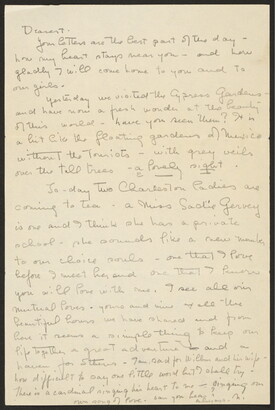 Dearest -
Your letters are the best part of the day -
how my heart stays near you - and how
gladly I will come home to you and to
our girls.
Yesterday we visited the Cypress Gardens -
and have now a fresh wonder at the beauty
of this world - have you seen them? It is
a bit like the floating gardens of Mexico
without the Tourists - with grey veils
over the tall trees - a lovely sight -
To-day two Charleston Ladies are
coming to tea - a Miss Sadie Gervey
is one and I think she has a private
school - she sounds like a new
to our choice souls - one that I love
before I meet her, and one that I know
you will love with me. I see all our
mutual loves - yours and mine & all the
beautiful hours we have shared and from
here it seems a simple thing to keep our
life together a great adventure - and a
haven for others - I'm sad for and his wife -
how difficult to say one little word but I shall try.
There is a cardinal singing his heart to me - singing our
own song of love. can you hear? always -